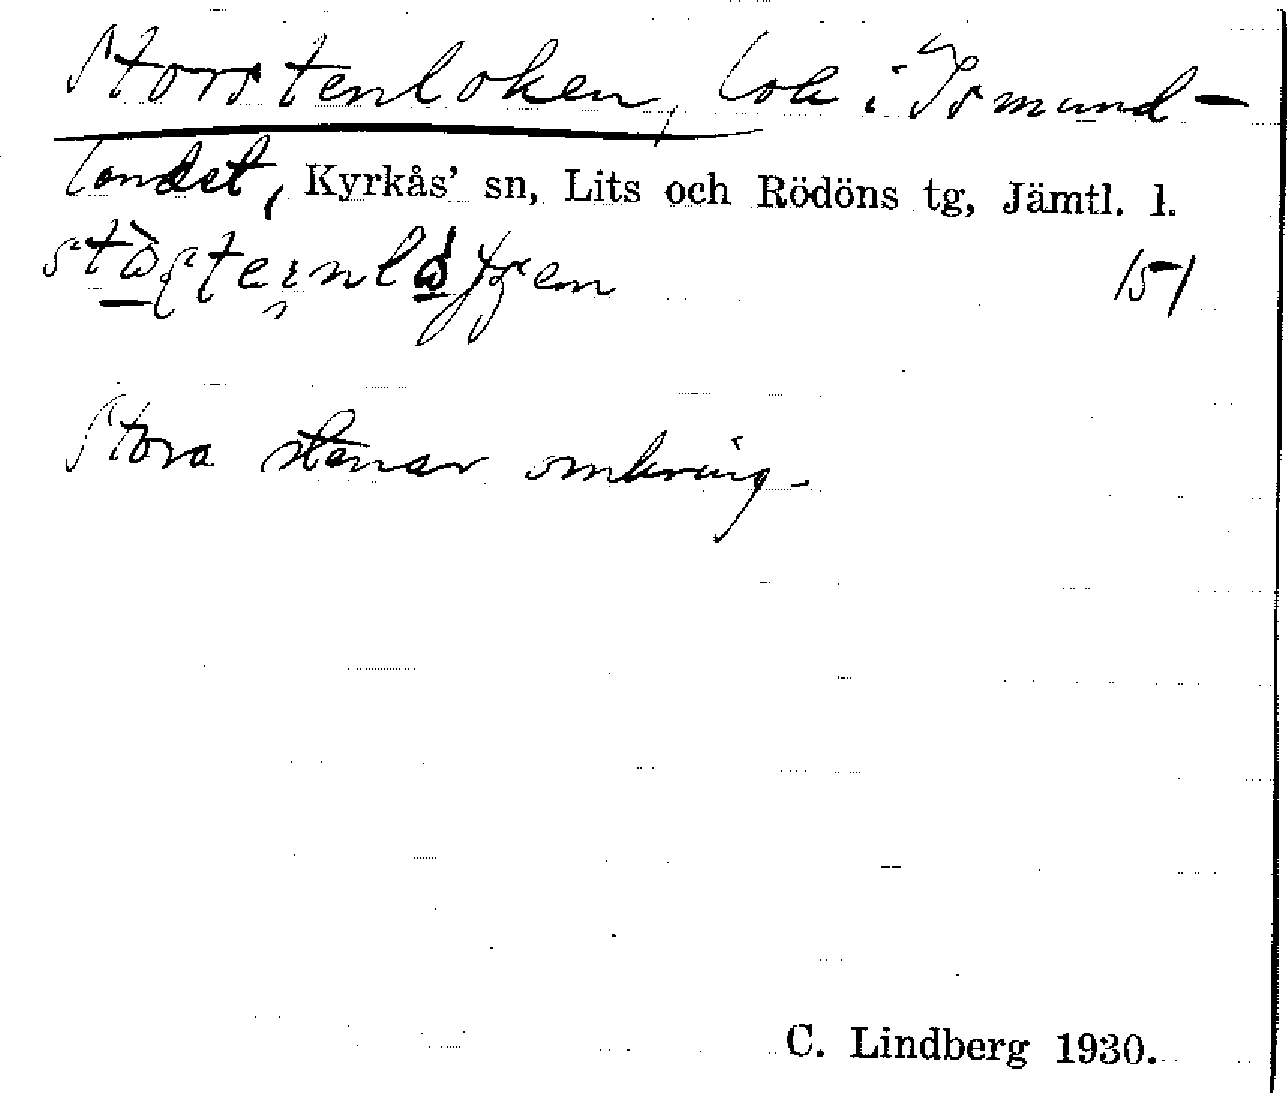 Storstenloken, lok i Ismund-
landet, Kyrkås' sn, Lits och Rödöns tg, Jämtl. l.
151
Stora stenar omkring.
C. Lindberg 1930.